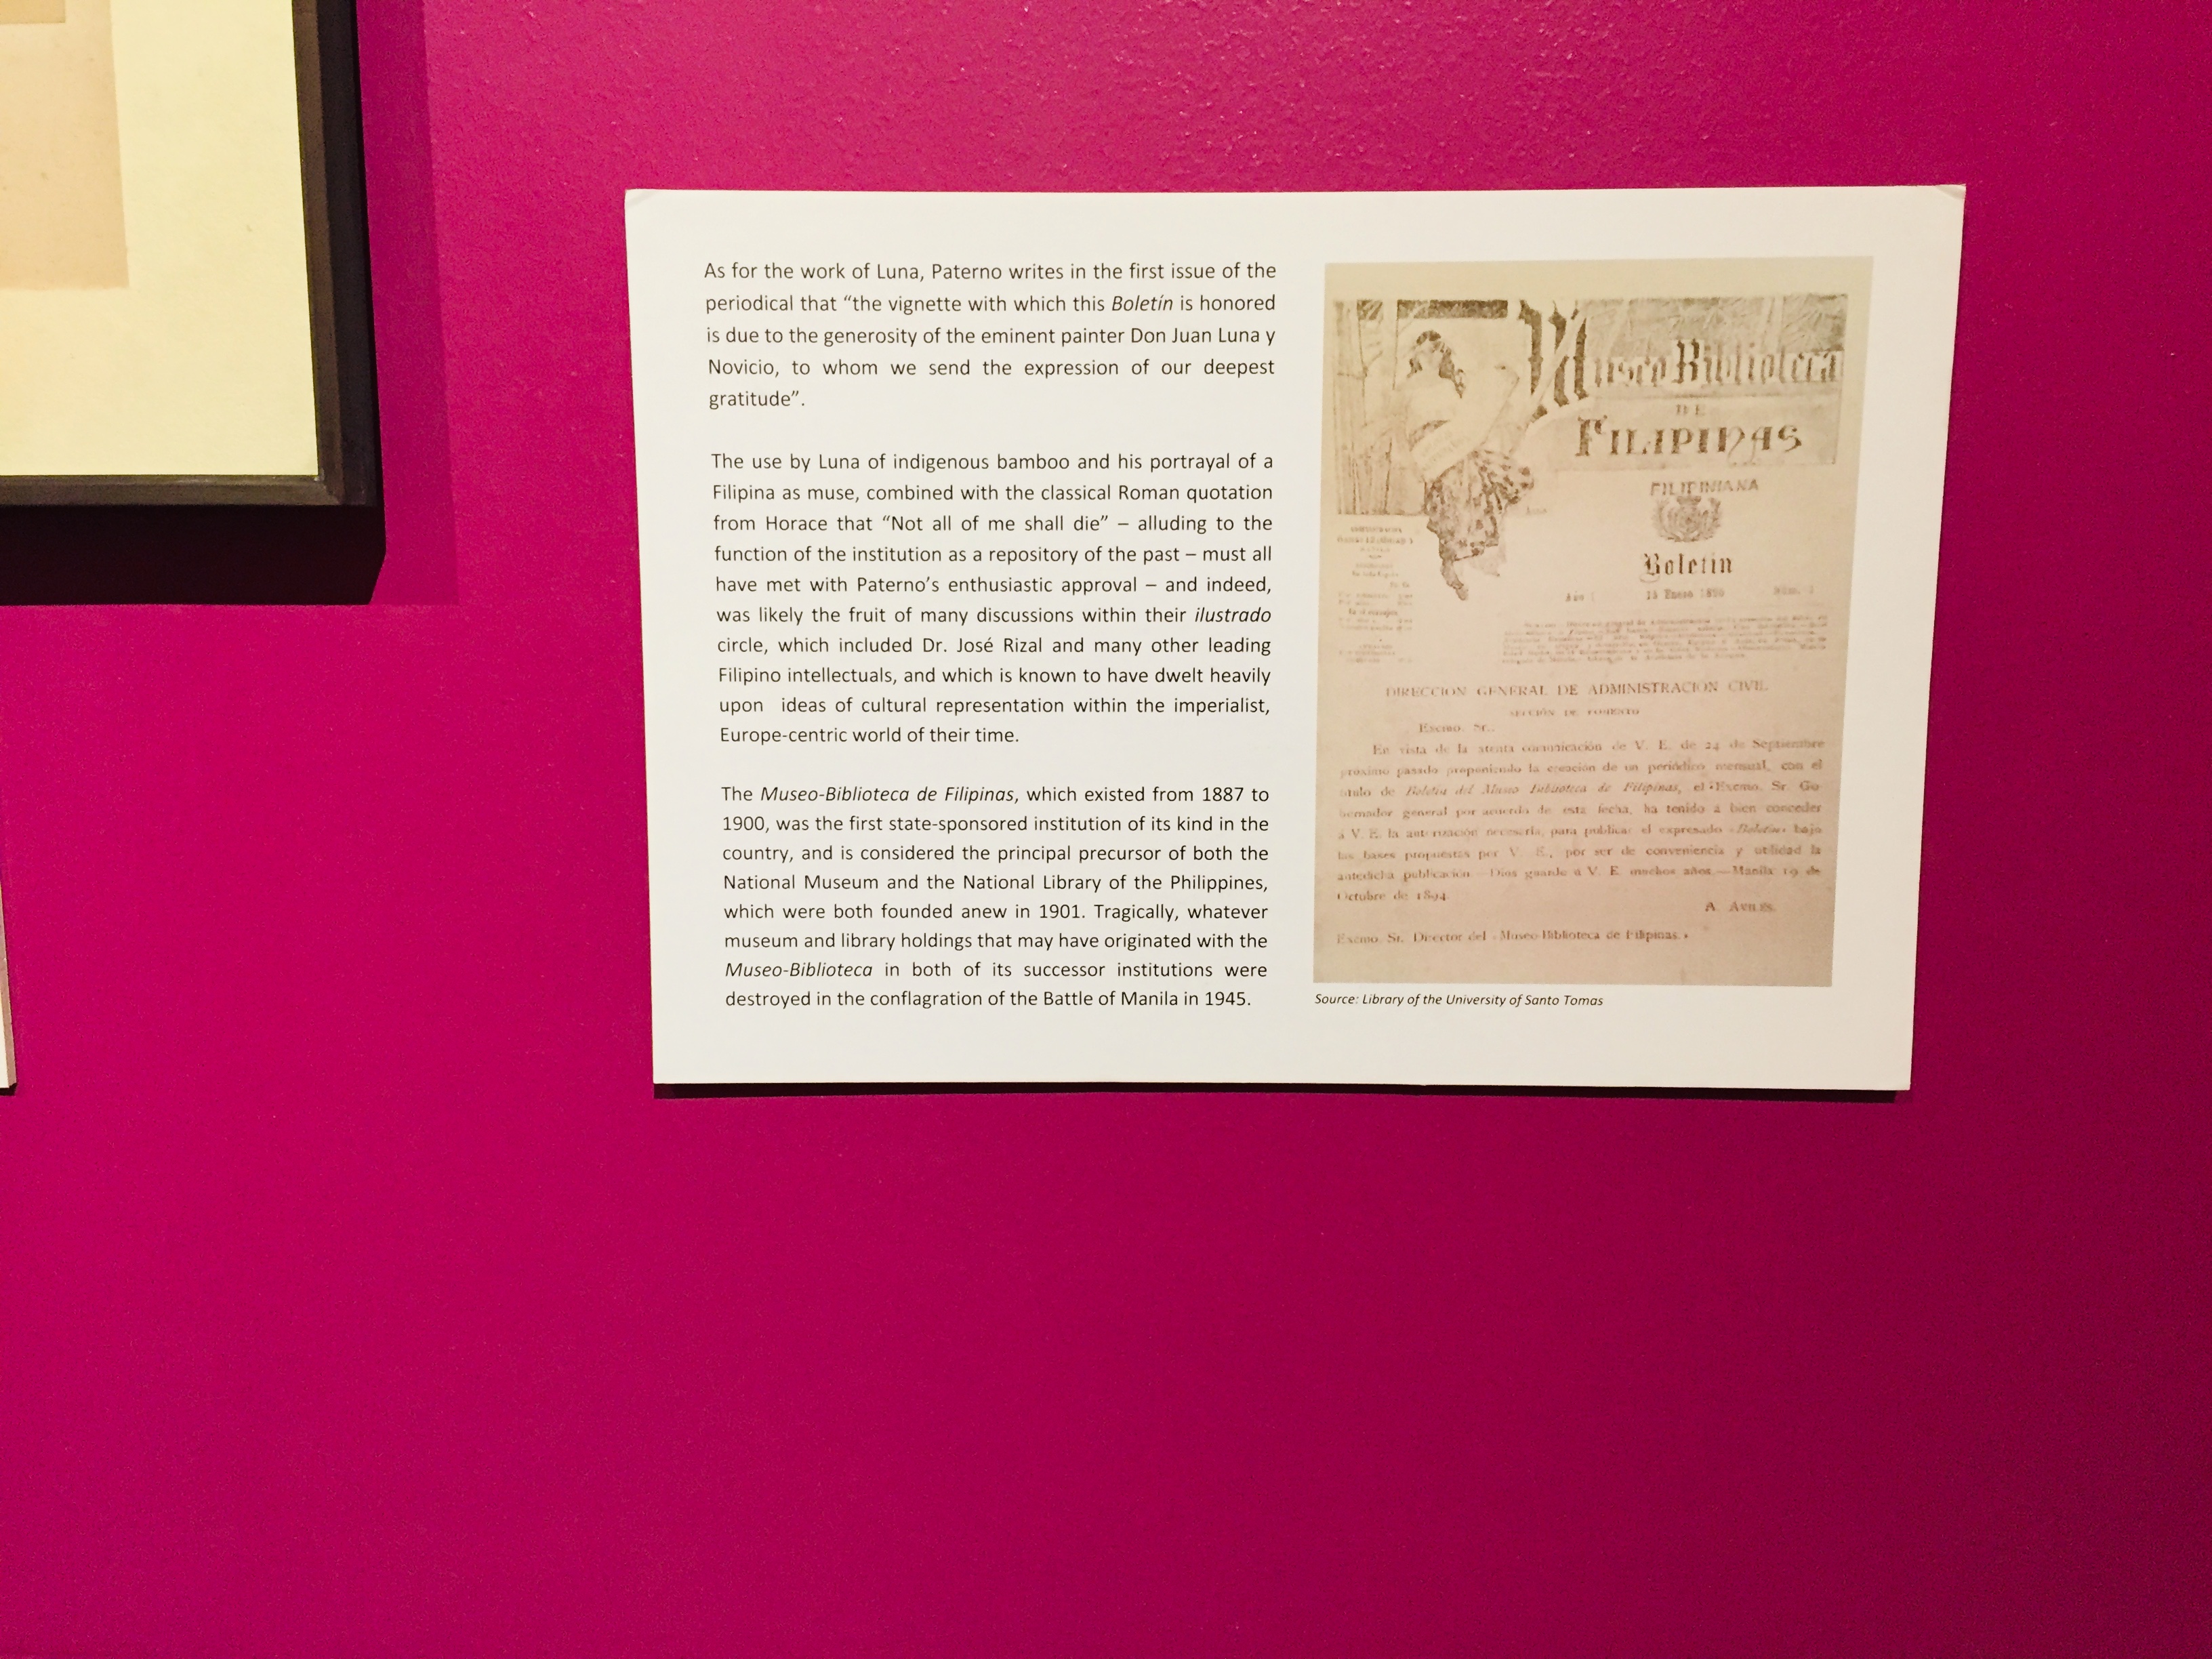 As for the work of Luna, Paterno writes in the first issue of the
periodical that “the vignette with which this Boletín is honored
is due to the generosity of the eminent painter Don Juan Luna y
Novicio, to whom we send the expression of our deepest
gratitude”.
The use by Luna of indigenous bamboo and his portrayal of a
Filipina as muse, combined with the classical Roman quotation
from Horace that “Not all of me shall die” – alluding to the
function of the institution as a repository of the past – must all
have met with Paterno’s enthusiastic approval – and indeed,
was likely the fruit of many discussions within their ilustrado
circle, which included Dr. José Rizal and many other leading
Filipino intellectuals, and which is known to have dwelt heavily
upon ideas of cultural representation within the imperialist,
Europe-centric world of their time.
The Museo-Biblioteca de Filipinas, which existed from 1887 to
1900, was the first state-sponsored institution of its kind in the
country, and is considered the principal precursor of both the
National Museum and the National Library of the Philippines,
which were both founded anew in 1901. Tragically, whatever
museum and library holdings that may have originated with the
Museo-Biblioteca in both of its successor institutions were
destroyed in the conflagration of the Battle of Manila in 1945.
Museo Biblioteca
DE
FILIPINAS
FILIPINIANA
Boletin
15 Enero
DIRECCION GENERAL DE ADMINISTRACION CIVIL.
SECCIÓN DE FOMENTO
Excmo. Sr.
En vista de la atenta comunicación de V. E. de 24 de Septiembre
próximo pasado proponiendo la creación de un periódico mensual, con el
título de Boletín del Museo Biblioteca de Filipinas, el Excmo. Sr. Go
bernador general por acuerdo de esta fecha, ha tenido á bien conceder
á V. E. la autorización necesaria, para publicar el expresado «Boletín» bajo
las bases propuestas por V. E., por ser de conveniencia y utilidad la
antedicha publicación —Dios guarde á V. E. muchos años.—Manila 19 de
Octubre de 1894.
A. Avilés.
Excmo. Sr. Director del «Museo-Biblioteca de Filipinas.»
Source: Library of the University of Santo Tomas